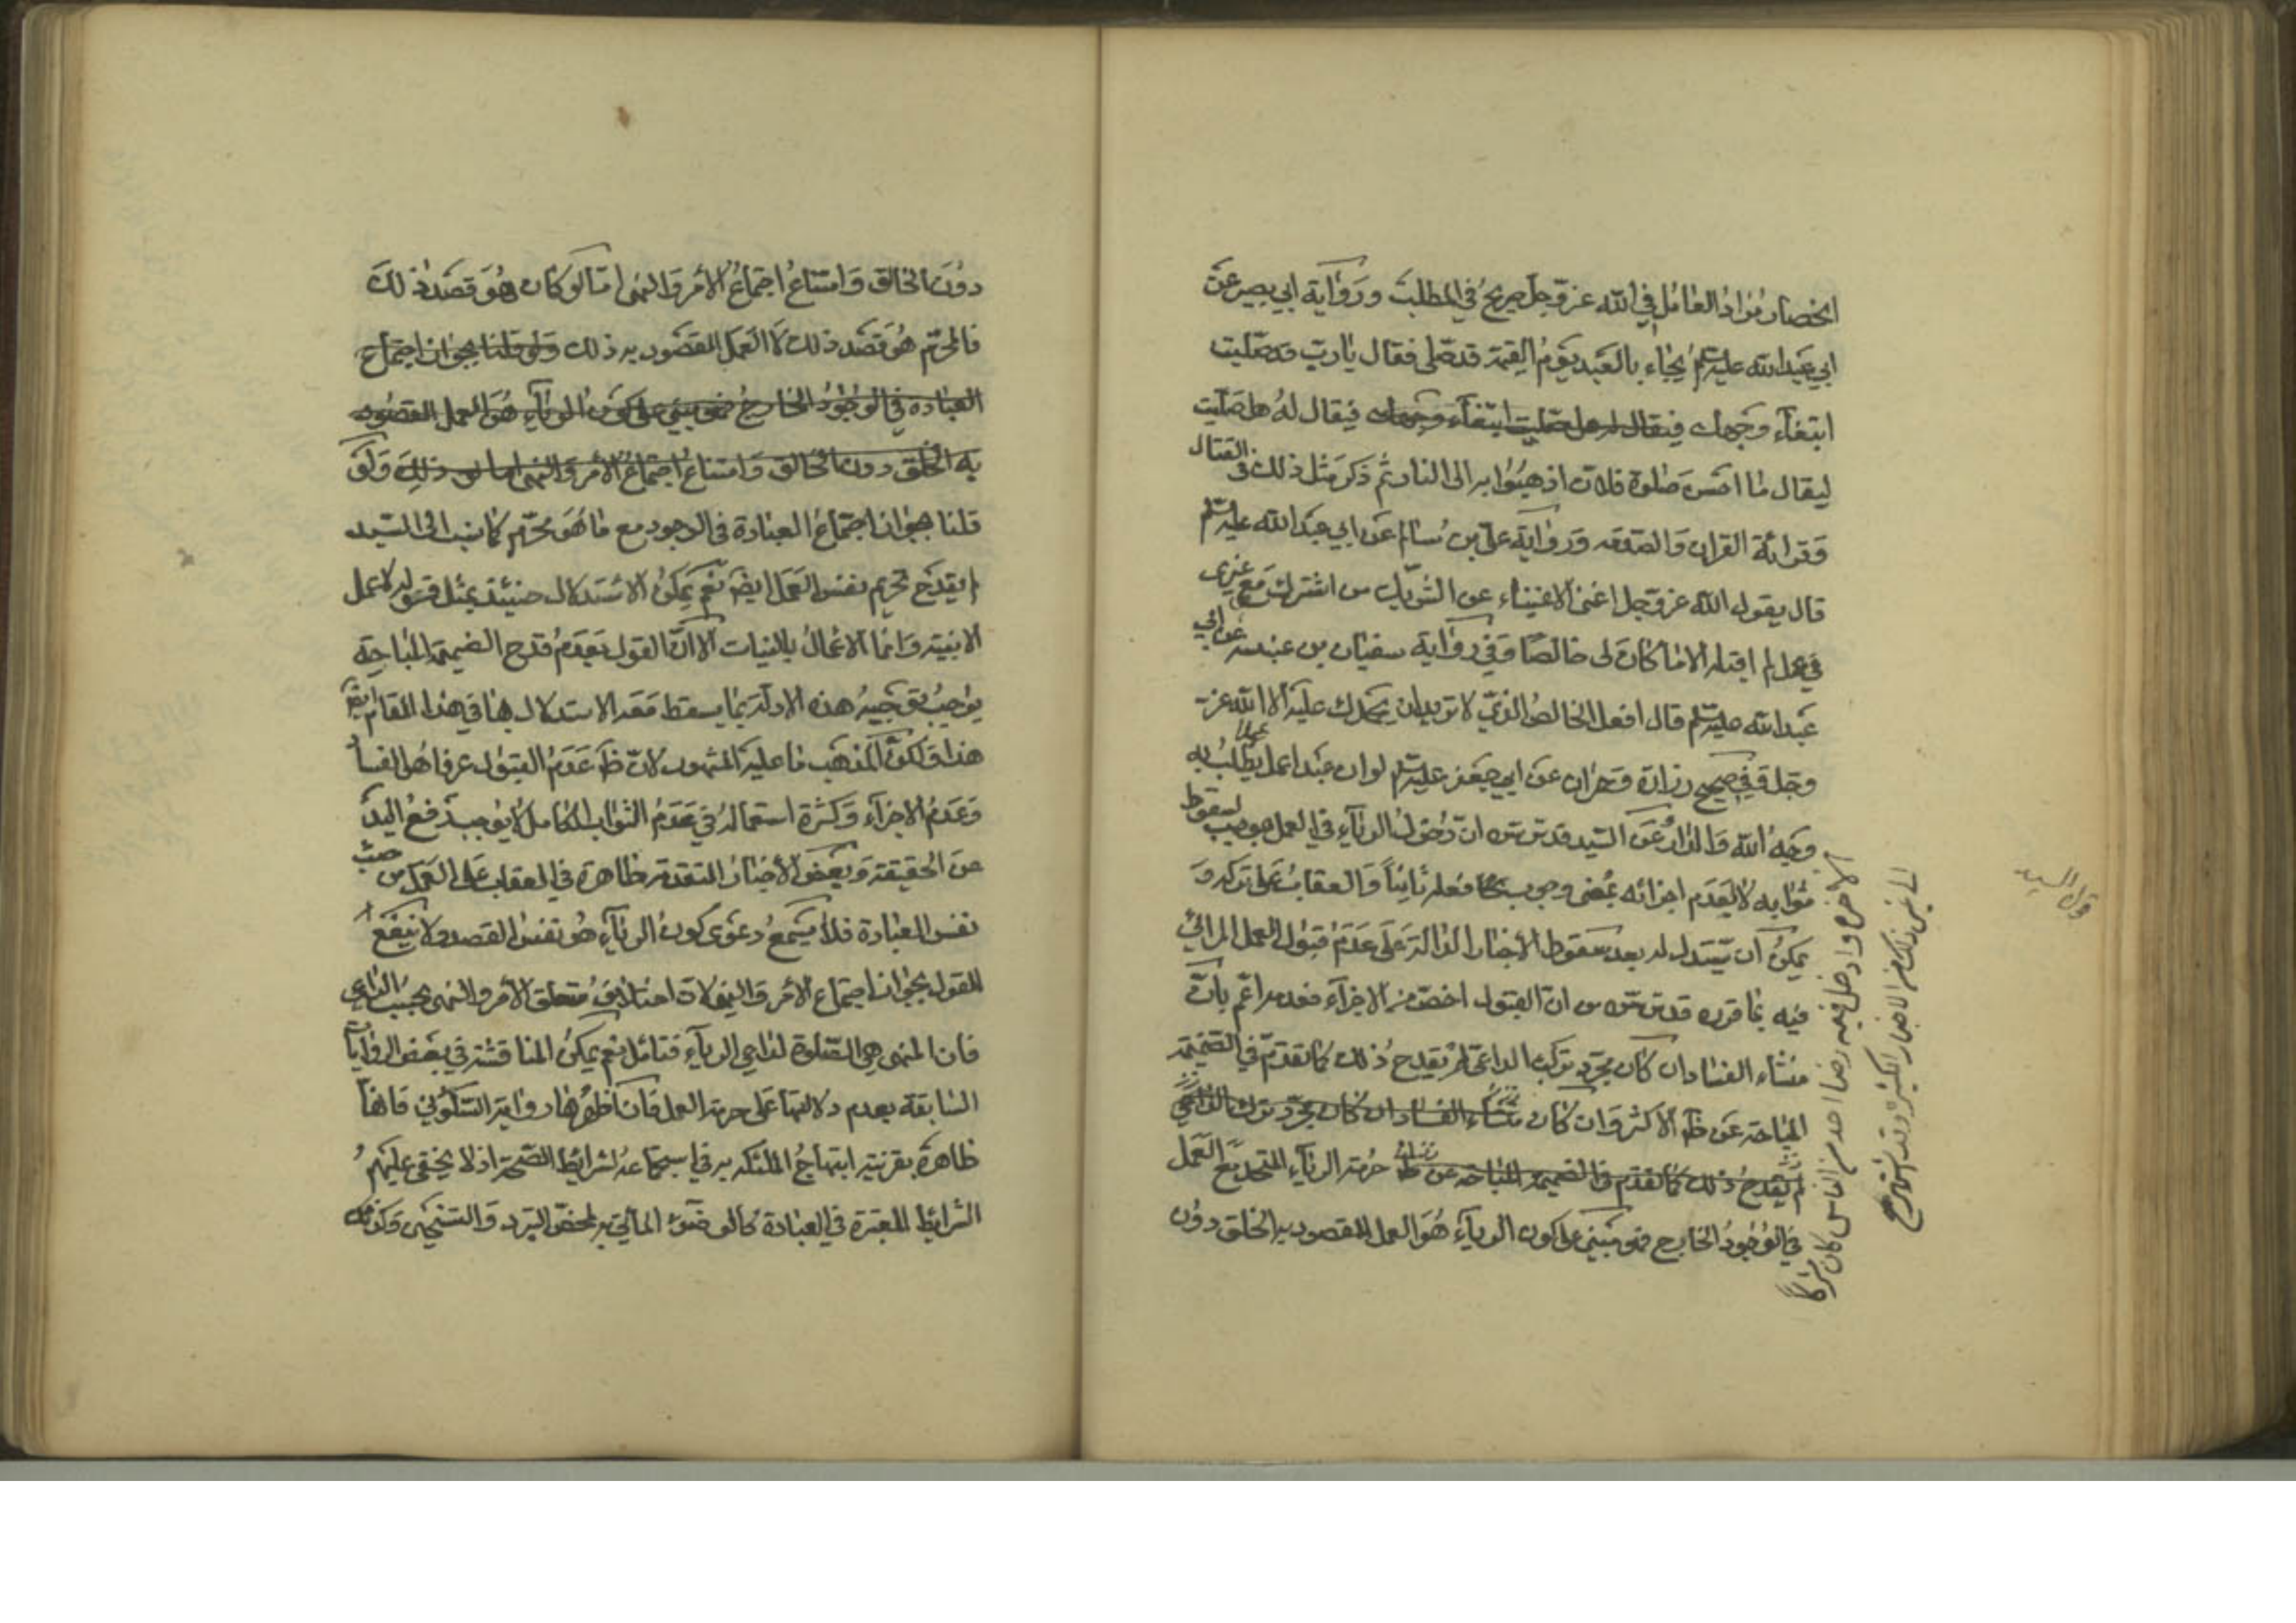 انحصار مراد العامل في الله عز وجل صريح في المطلب ورواية ابي بصير عن
ابي عبد الله عليه السلم يجاء بالعبد يوم القيمة قد صلى فقال يا رب قد صليت
ابتغاء وجهك فيقال له بل صليت ابتغاء وجهك فيقال له بل صليت
ليقال ما احسن صلوة فلان اذهبوا به الى النار ثم ذكر مثل ذلك في القتال
وقرائة القران والصدقه ورواية علي بن سالم عن ابي عبد الله عليه السلم
قال يقول الله عز وجل اغنى الاغنياء عن الشريك من اشرك مع غيري
في عمل لم اقبله الا ما كان لى خالصا وفي رواية سفيان بن عيينه عن ابي
عبد الله عليه السلم قال افعل الخالص الذي لا تريد ان يحمدك عليه الا الله عز
وجل وفي صحيح زرارة وحمران عن ابي جعفر عليه السلم لو ان عبدا عمل عملا يطلب به
وجه الله والدار
الاخرة وادخل فيه رضا احد من الناس كان مشركا
الى غير ذلك من الاخبار الكثيرة وقد اشتهر
عن السيد قدس سره ان دخول الرياء في العمل موجب لسقوط
ثوابه لا لعدم اجزائه بمعنى وجوب فعله ثانيا والعقاب على تركه و
يمكن ان يستدل له بعد سقوط الاخبار الدالة على عدم قبول العمل المرائي
فيه بما قرره قدس سره من ان القبول اخص من الاجزاء بان
منشاء الفساد ان كان مجرد تركب الداعي لم يقدح ذلك كما تقدم في الضميمة
المباحة عن ظ الاكثر وان كان منشاء الفساد ان كان مجرد تركب الداعي
لم يقدح ذلك كما تقدم في الضميمة المباحة عن ظ حرمة الرياء المتحد مع العمل
في الوجود الخارج فهو مبني على كون الرياء هو العمل المقصود به الخلق دون
قول السيد
دون الخالق وامتناع اجتماع الامر والنهى اما لو كان هو قصد ذلك
فالمحرم هو قصد ذلك لا العمل المقصود به ذلك ولو قلنا بجواز اجتماع
العبادة في الوجود الخارج فهو مبني على كون الرياء هو العمل المقصود
به الخلق دون الخالق وامتناع اجتماع الامر والنهى اما لو ذلك ولو
قلنا بجواز اجتماع العبادة في الوجود مع ما هو محرم كما ينسب الى السيد
لم يقدح تحريم نفس العمل ايضا نعم يمكن الاستدلال حينئذ بمثل قوله لا عمل
الا بنية وانما الاعمال بالنيات الا ان القول بعدم قدح الضميمة المباحة
يوجب توجيه هذه الادلة بما يسقط معه الاستدلال بها في هذا المقام ايضا
هذا ولكن المذهب ما عليه المشهور لان ظ عدم القبول عرفا هو الفساد
وعدم الاجزاء وكثرة استعماله في عدم الثواب الكامل لا يوجب رفع اليد
عن الحقيقة وبعض الاخبار المتقدمة ظاهرة في العقاب على العمل من حيث
نفس العبادة فلا يسمع دعوى كون الرياء هو نفس القصد ولا ينفع
القول بجواز اجتماع الامر والنهى لان اختلاف متعلق الامر والنهى بحسب الداعي
فان المنهى هى الصلوة لداعي الرياء فتامل نعم يمكن المناقشة في بعض الروايات
السابقة بعدم دلالتها على حرمة العمل فان اظهرها رواية السكوني فانها
ظاهرة بقرينة ابتهاج الملك به في استجماعه لشرائط الصحة اذ لا يخفى عليهم
الشرائط المعتبرة في العبادة كالوضوء الماتي به لمحض التبرد والتسخين وكون